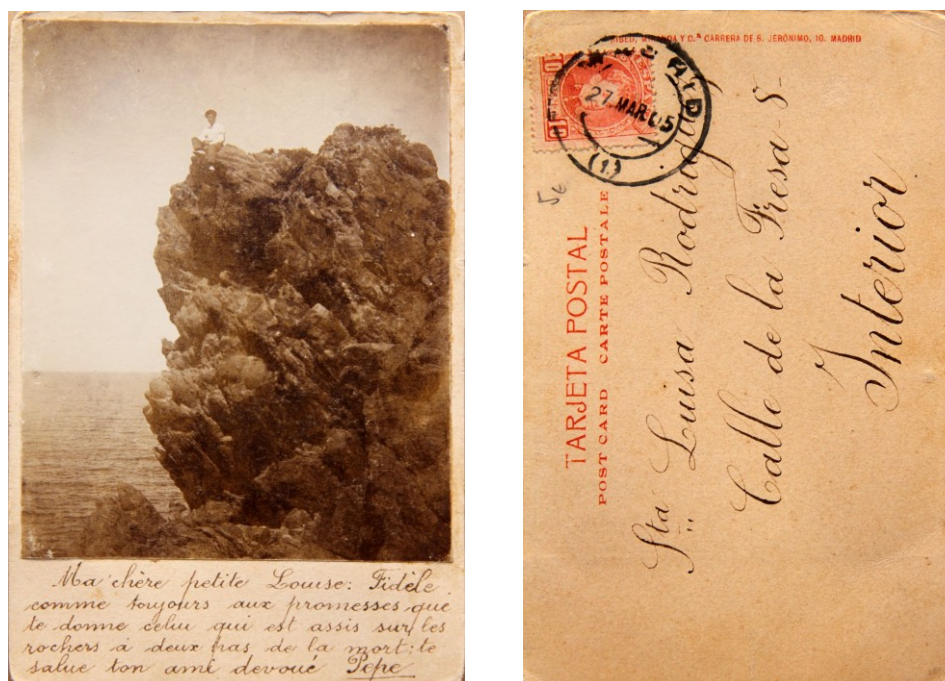 Ma chère petite Louise: Fidèle
comme toujours aux promesses que
te donne celui qui est assis sur les
rochers à deux pas de la mort: te
salue ton ami devoué Pepe
Y C.ª CARRERA DE S. JERÓNIMO, 10. MADRID
27 MAR 05
(1)
TARJETA POSTAL
POST CARD CARTE POSTALE
Sta Luisa
Calle de la Fresa 8
Interior